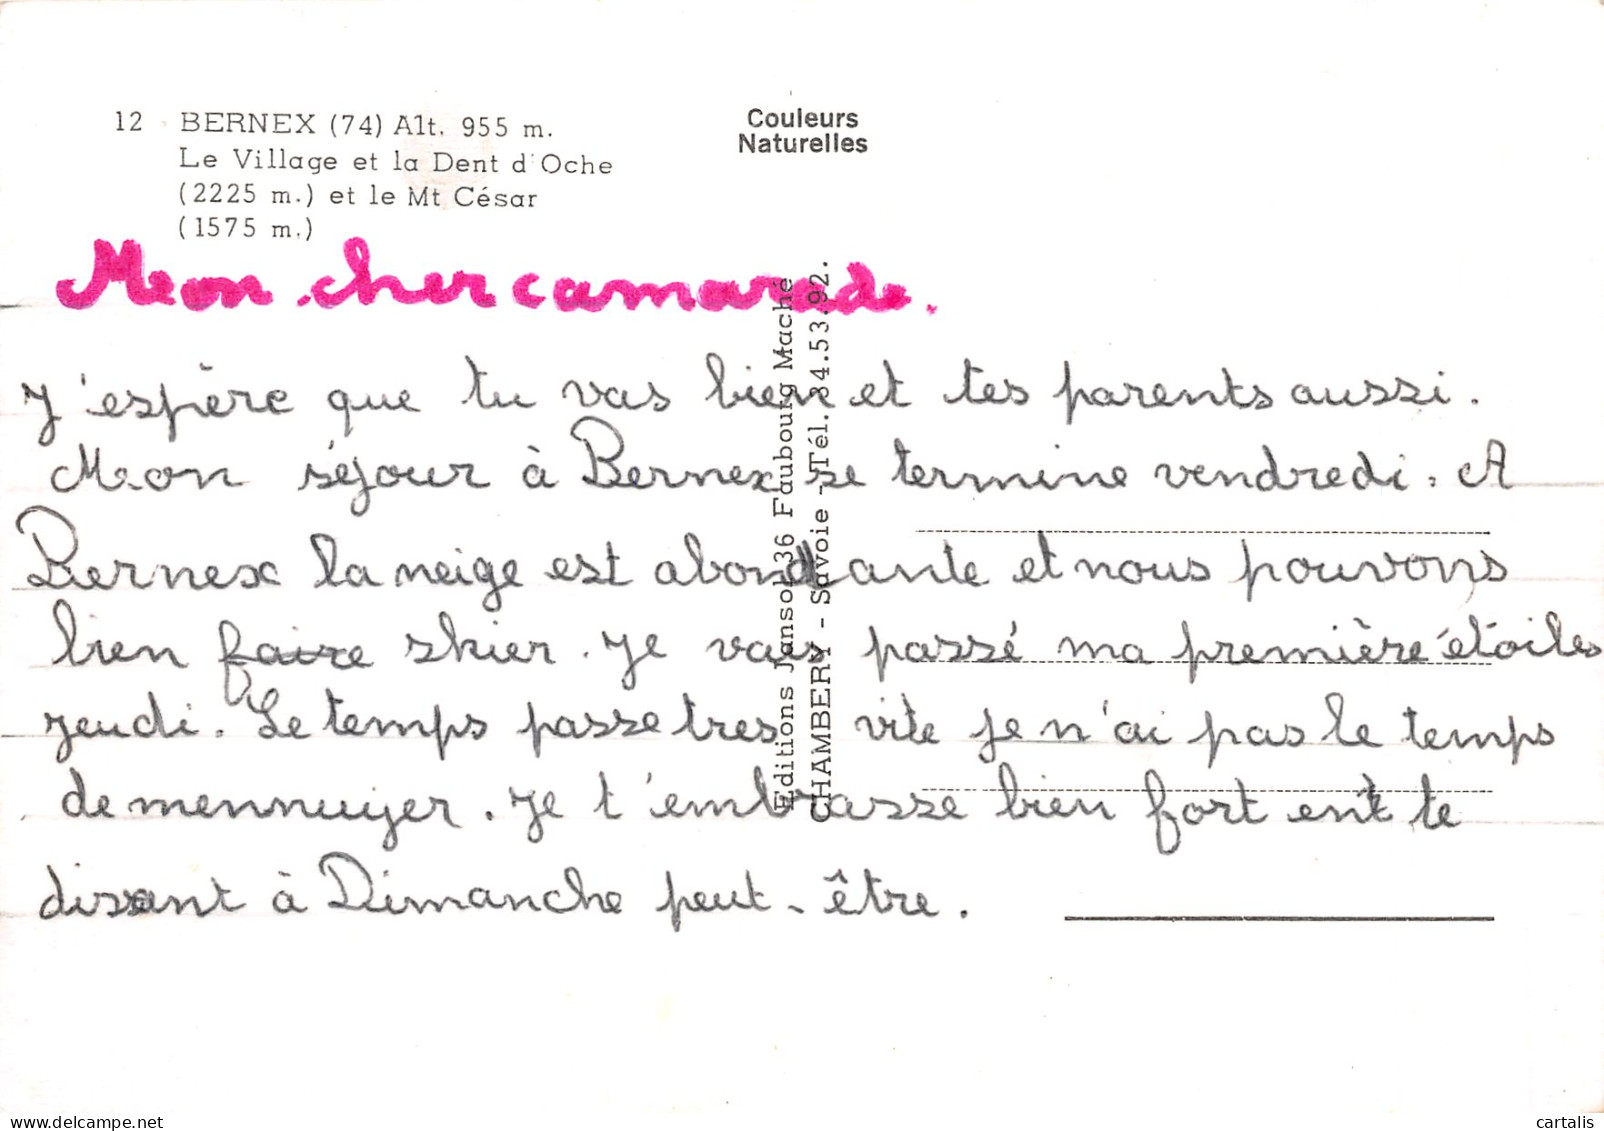 12 BERNEX (74) Alt. 955 m.
Le Village et la Dent d'Oche
(2225 m.) et le Mt César
(1575 m.)
Couleurs
Naturelles
Mon cher camarade.
J'espère que tu vas bien et tes parents aussi.
Mon séjour à Bernex se termine vendredi. A
Bernex la neige est abondante et nous pouvons
bien faire skier. Je vais passé ma première étoiles
jeudi. Le temps passe tres vite je n'ai pas le temps
de mennuyer. Je t'embrasse bien fort ent te
dissant à Dimanche peut-être.
Editions Jansol 36 Faubourg Maché
CHAMBERY - Savoie - Tél. 34.53.92.
cartalis